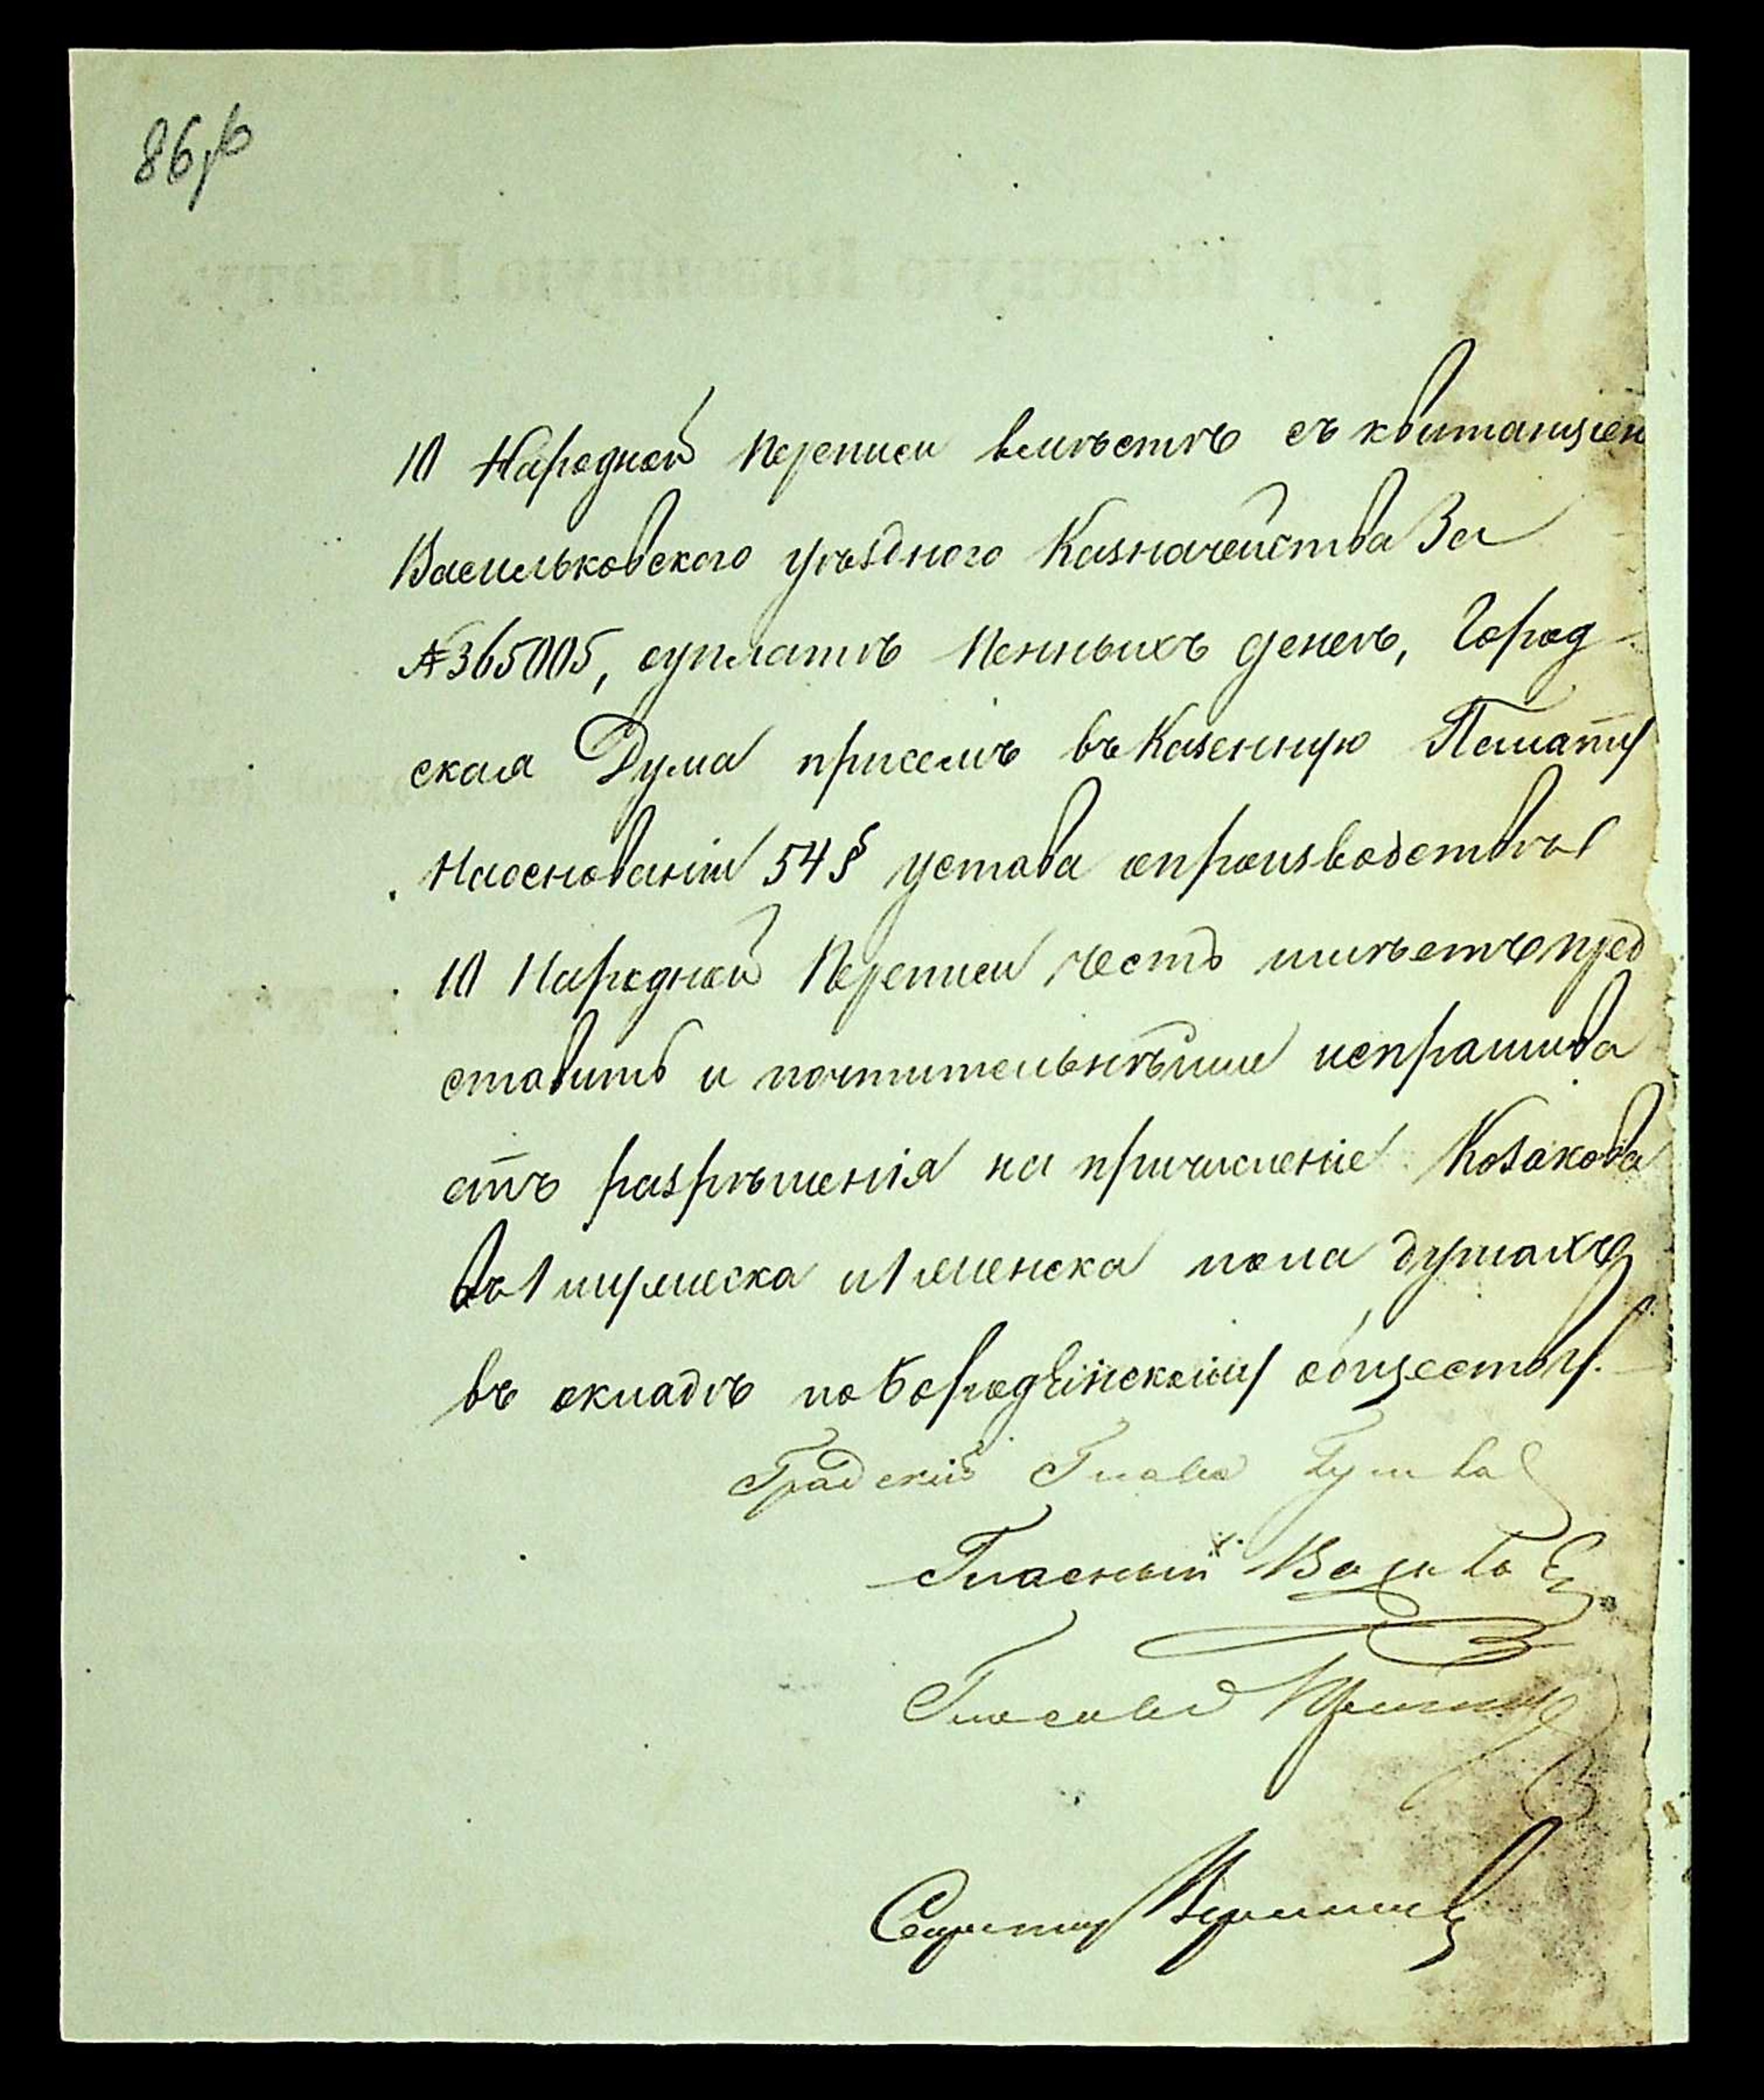 86об
10 Народной Переписи вмѣстѣ съ квитанціею
Васильковского уѣздного Казначейства За
№ 365005, оуплатѣ Пенныхъ денегъ, Город
ская Дума присемъ въ Казенную Палату
Наоснованіи 54 § устава опроизводствѣ
10 Народной Переписи честь имѣетъ пред
ставить и почтительнѣйше испрашива
етъ разрѣшенія на причисленіе Козакова
въ 1 мужеска и 1 женска пола душахъ
въ окладъ по Бородянскому обществу.
Градскій Глава
Гласный
Гласный